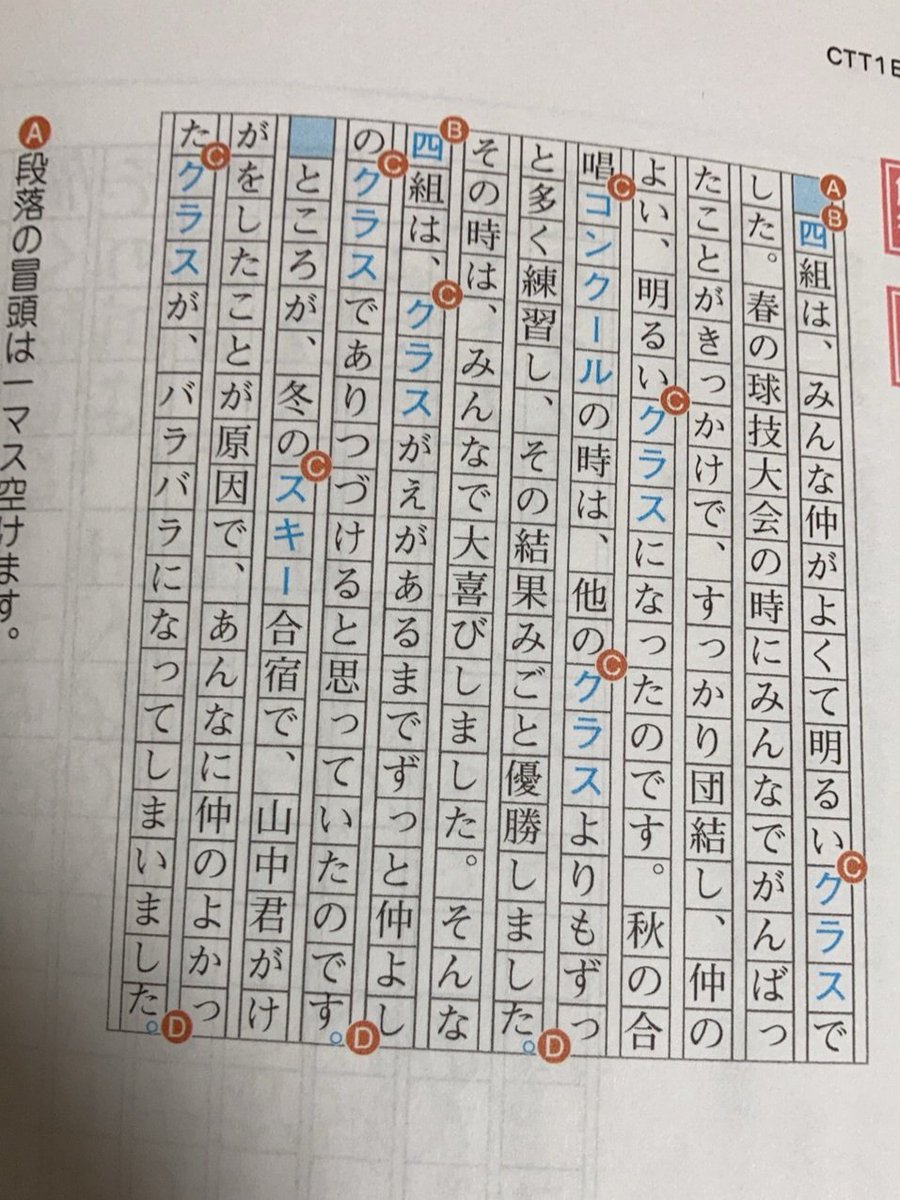 CTT1E
四組は、みんな仲がよくて明るいクラスで
した。春の球技大会の時にみんなでがんばっ
たことがきっかけで、すっかり団結し、仲の
よい、明るいクラスになったのです。秋の合
唱コンクールの時は、他のクラスよりもずっ
と多く練習し、その結果みごと優勝しました。
その時は、みんなで大喜びしました。そんな
四組は、クラスがえがあるまでずっと仲よし
のクラスでありつづけると思っていたのです。
ところが、冬のスキー合宿で、山中君がけ
がをしたことが原因で、あんなに仲のよかっ
たクラスが、バラバラになってしまいました。
A 段落の冒頭は一マス空けます。